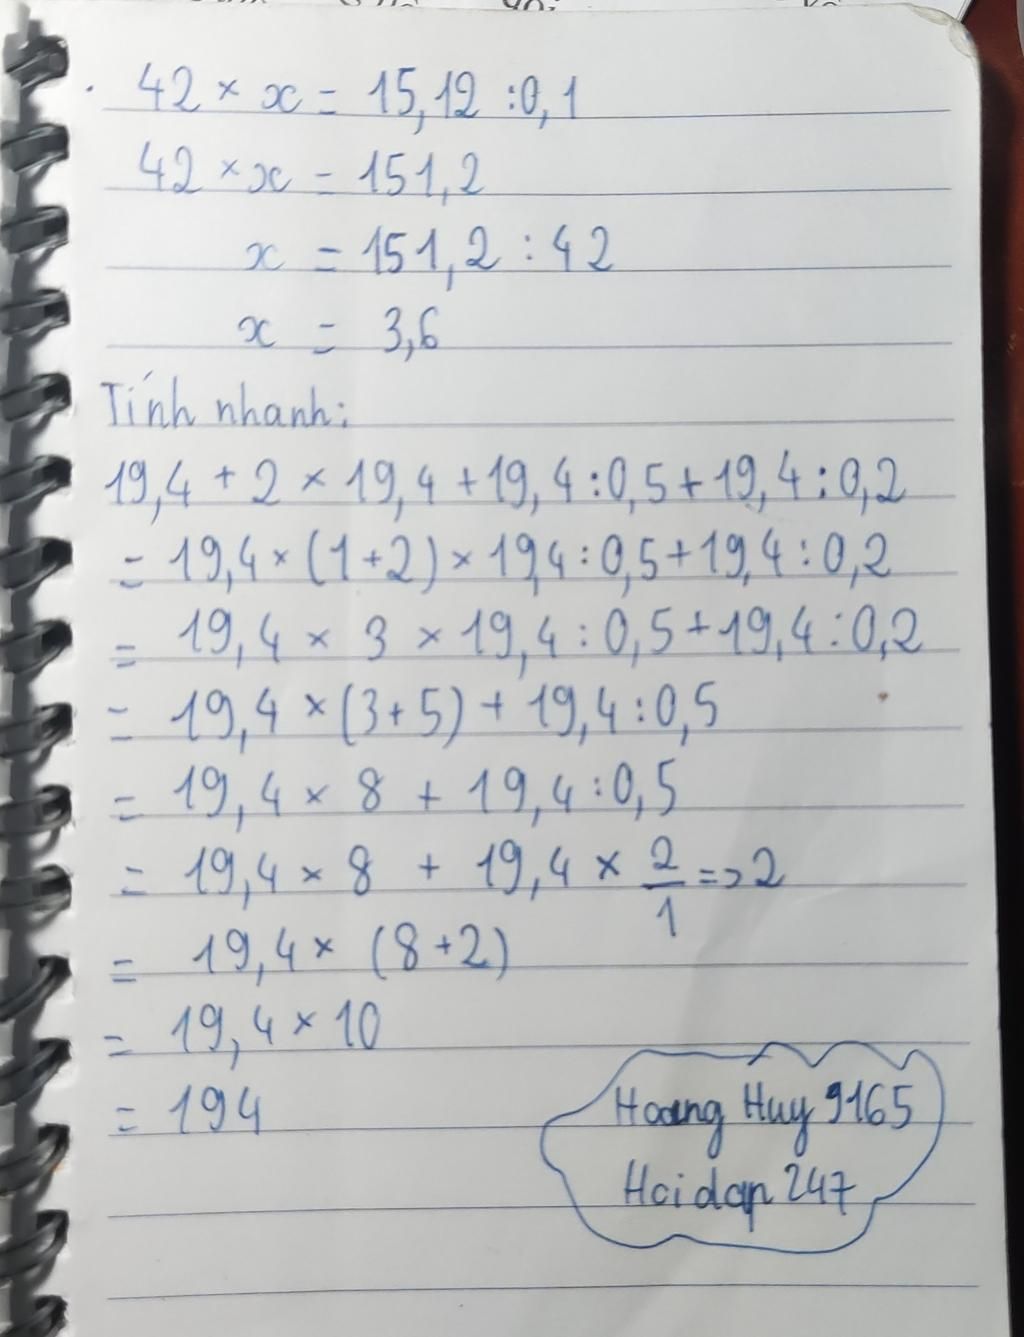 42 × x = 15,12 : 0,1
42 × x = 151,2
x = 151,2 : 42
x = 3,6
Tính nhanh:
19,4 + 2 × 19,4 + 19,4 : 0,5 + 19,4 : 0,2
= 19,4 × (1+2) × 19,4 : 0,5 + 19,4 : 0,2
= 19,4 × 3 × 19,4 : 0,5 + 19,4 : 0,2
= 19,4 × (3+5) + 19,4 : 0,5
= 19,4 × 8 + 19,4 : 0,5
= 19,4 × 8 + 19,4 × 2/1 => 2
= 19,4 × (8+2)
= 19,4 × 10
= 194
Hoang Huy 9165
Hoidap 247